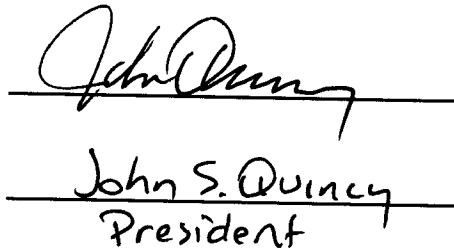 John Quincy
John S. Quincy
President